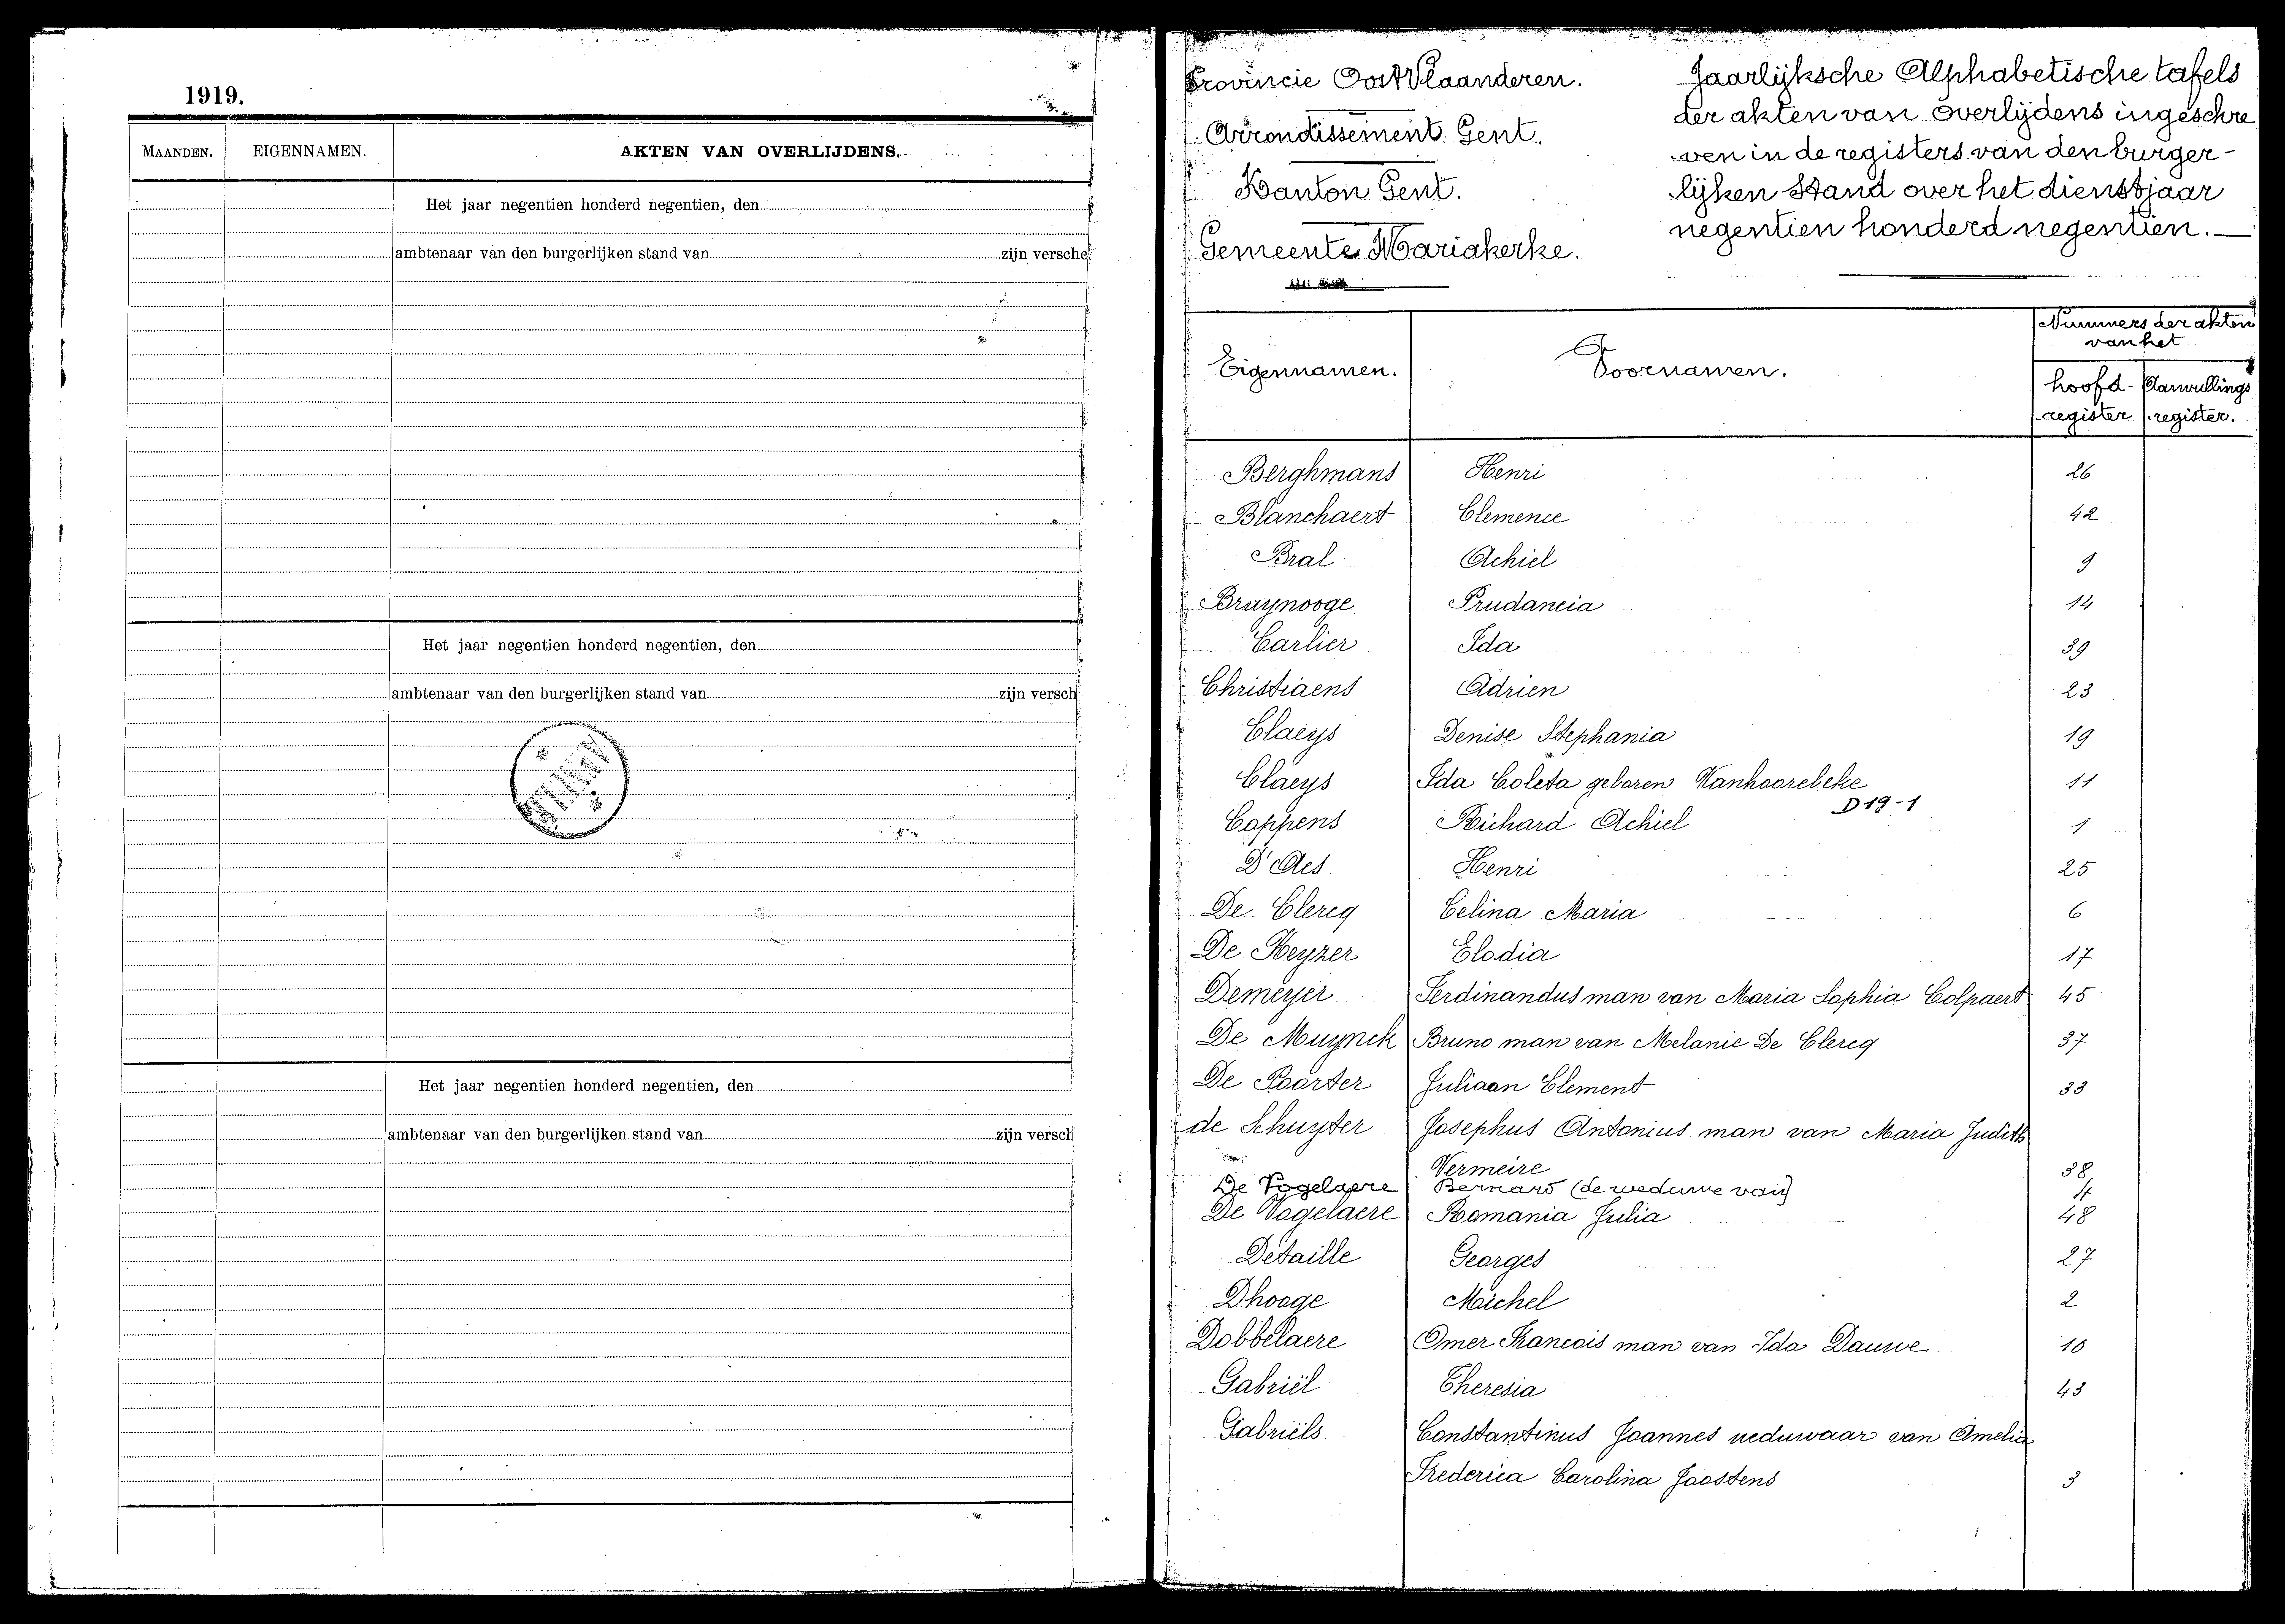 1919.
MAANDEN. EIGENNAMEN. AKTEN VAN OVERLIJDENS.
Het jaar negentien honderd negentien, den
ambtenaar van den burgerlijken stand van zijn versche
Het jaar negentien honderd negentien, den
ambtenaar van den burgerlijken stand van zijn versch
Het jaar negentien honderd negentien, den
ambtenaar van den burgerlijken stand van zijn versch
Provincie Oost Vlaanderen.
Arrondissement Gent.
Kanton Gent.
Gemeente Mariakerke.
Jaarlijksche Alphabetische tafels
der akten van overlijdens ingeschre
ven in de registers van den burger-
lijken Stand over het dienstjaar
negentien honderd negentien.—
Eigennamen. Voornamen. Nummers der akten
van het
hoofd- Aanvullings
register register.
Berghmans Henri 26
Blanchaert Clemence 42
Bral Achiel 9
Bruynooge Prudancia 14
Carlier Ida 39
Christiaens Adrien 23
Claeys Denise Stephania 19
Claeys Ida Coleta geboren Vanhoorebeke 11
D19-1
Coppens Richard Achiel 1
D'Aes Henri 25
De Clercq Celina Maria 6
De Keyzer Elodia 17
Demeyer Ferdinandus man van Maria Sophia Colpaert 45
De Muynck Bruno man van Melanie De Clercq 37
De Poorter Juliaan Clement 33
de Schuyter Josephus Antonius man van Maria Judith
Vermeire 38
De Vogelaere Bernard (de weduwe van) 4
De Vogelaere Romania Julia 48
Detaille Georges 27
Dhooge Michel 2
Dobbelaere Omer Francois man van Ida Dauwe 10
Gabriël Theresia 43
Gabriëls Constantinus Joannes weduwaar van Amelia
Frederica Carolina Joostens 3